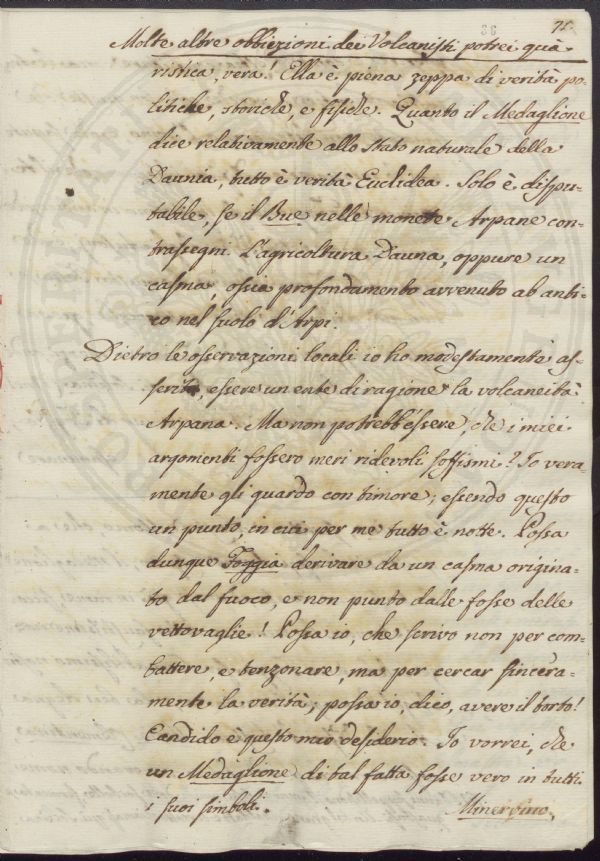 75
Molte altre obbiezioni dei Volcanisti potrei quà
ristica, vera! Ella è piena zeppa di verità po-
litiche, storiche, e fisiche. Quanto il Medaglione
dice relativamente allo stato naturale della
Daunia, tutto è verità Euclidea. Solo è dispu-
tabile, se il Bue nelle monete Arpane con-
trassegni l'agricoltura Dauna, oppure un
casma, ossia profondamento avvenuto ab anti-
co nel suolo d'Arpi.
Dietro le osservazioni locali io ho modestamente as-
serito, essere un ente di ragione la volcaneità
Arpana. Ma non potrebb'essere, che i miei
argomenti fossero meri ridevoli soffismi? Io vera-
mente gli guardo con timore; essendo questo
un punto, in cui per me tutto è notte. Possa
dunque Foggia derivare da un casma origina-
to dal fuoco, e non punto dalle fosse delle
vettovaglie! Possa io, che scrivo non per com-
battere, e tenzonare, ma per cercar sincera-
mente la verità; possa io, dico, avere il torto!
Candido è questo mio desiderio. Io vorrei, che
un Medaglione di tal fatta fosse vero in tutti
i suoi simboli. Minervino.